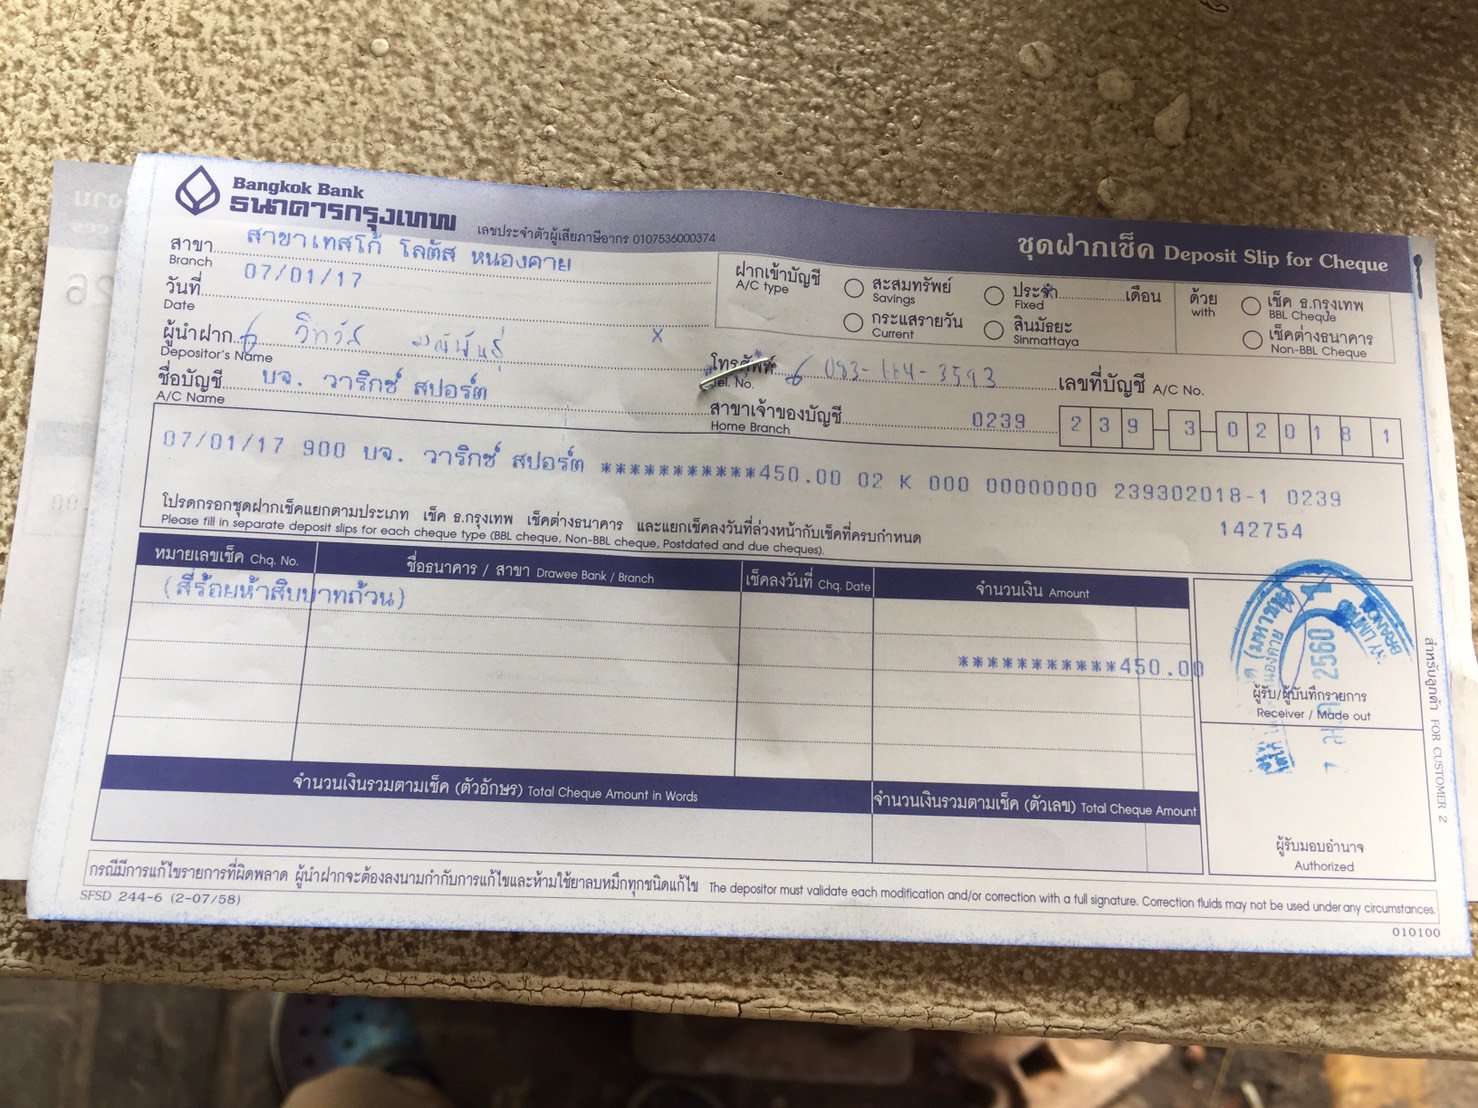 Bangkok Bank
ธนาคารกรุงเทพ
เลขประจำตัวผู้เสียภาษีอากร 0107536000374
ชุดฝากเช็ค Deposit Slip for Cheque
สาขา สาขาเทสโก้ โลตัส หนองคาย
Branch
วันที่ 07/01/17
Date
ฝากเข้าบัญชี
A/C type
สะสมทรัพย์
Savings
ประจำ เดือน
Fixed
กระแสรายวัน
Current
สินมัธยะ
Sinmattaya
ด้วย
with
เช็ค ธ.กรุงเทพ
BBL Cheque
เช็คต่างธนาคาร
Non-BBL Cheque
ผู้นำฝาก x
Depositor's Name
โทรศัพท์ 093-164-3593
Tel. No.
เลขที่บัญชี A/C No.
ชื่อบัญชี บจ. วาริกซ์ สปอร์ต
A/C Name
สาขาเจ้าของบัญชี 0239
Home Branch
239-3-020181
07/01/17 900 บจ. วาริกซ์ สปอร์ต ***********450.00 02 K 000 00000000 239302018-1 0239
142754
โปรดกรอกชุดฝากเช็คแยกตามประเภท เช็ค ธ.กรุงเทพ เช็คต่างธนาคาร และแยกเช็คลงวันที่ล่วงหน้ากับเช็คที่ครบกำหนด
Please fill in separate deposit slips for each cheque type (BBL cheque, Non-BBL cheque, Postdated and due cheques).
หมายเลขเช็ค Chq. No. ชื่อธนาคาร / สาขา Drawee Bank / Branch เช็คลงวันที่ Chq. Date จำนวนเงิน Amount
(สี่ร้อยห้าสิบบาทถ้วน)
***********450.00
2560
ผู้รับ/ผู้บันทึกรายการ
Receiver / Made out
จำนวนเงินรวมตามเช็ค (ตัวอักษร) Total Cheque Amount in Words จำนวนเงินรวมตามเช็ค (ตัวเลข) Total Cheque Amount
ผู้รับมอบอำนาจ
Authorized
สำหรับลูกค้า FOR CUSTOMER 2
กรณีมีการแก้ไขรายการที่ผิดพลาด ผู้นำฝากจะต้องลงนามกำกับการแก้ไขและห้ามใช้ยาลบหมึกทุกชนิดแก้ไข The depositor must validate each modification and/or correction with a full signature. Correction fluids may not be used under any circumstances.
SFSD 244-6 (2-07/58)
010100